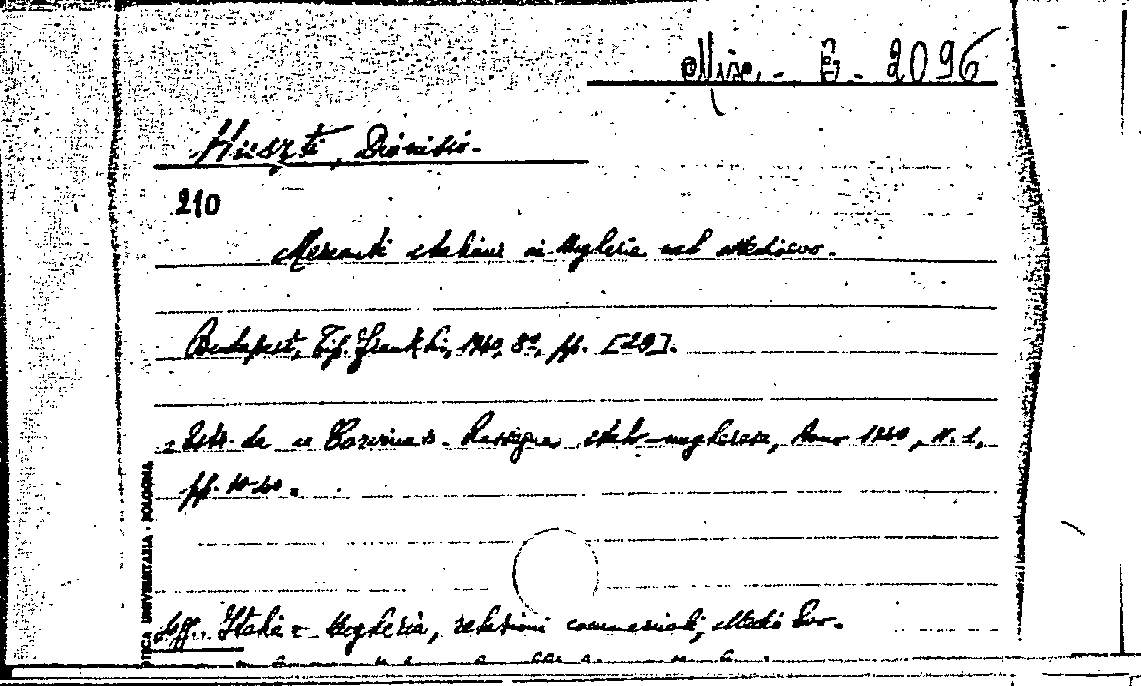 Misc. - B - 2096
Huszti, Dionisio.
210
Mercanti italiani in Ungheria nel Medioevo.
Budapest, Tip. Franklin, 1940, 8º, pp. [20].
Estr. da « Corvina ». Rassegna italo-ungherese, Anno 1940, N. 1,
pp.
Sogg. Italia - Ungheria, relazioni commerciali, Medio Evo.
UNIVERSITARIA - BOLOGNA